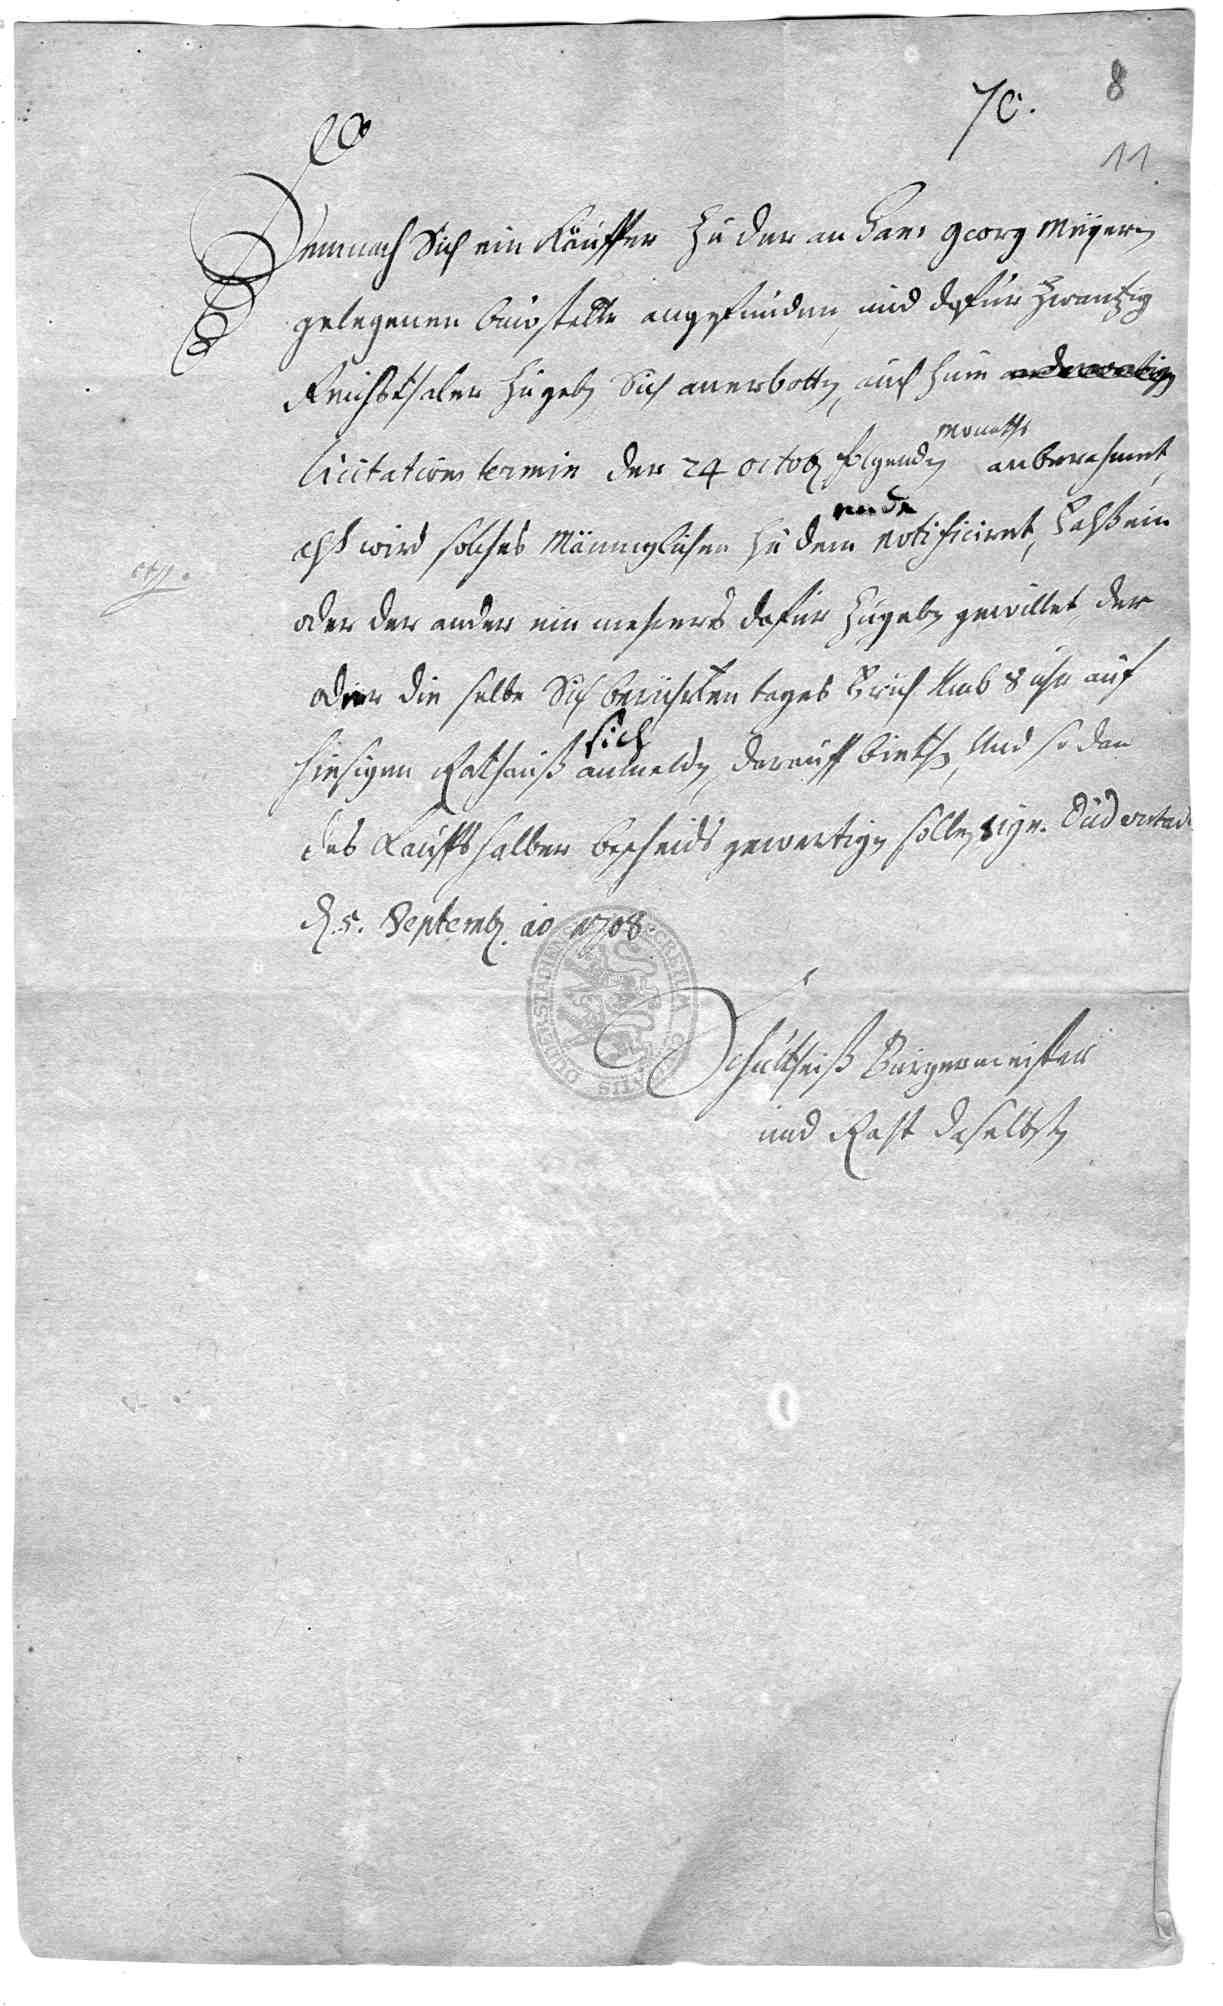 8
70.
11
Demnach Sich ein Käuffer zu der an Hans Georg Meyern
gelegenen baustelle angefunden, und dafür zwantzig
Reichsthaler zu geben Sich anerbotten, auch zum anderweitigen
monaths
licitations termin der 24 octob folgenden anberahmet,
ende
alß wird solches Männiglichen zu dem notificiret, daß ein
cop.
oder der ander ein mehrers dafür zugeben gewillet, der
oder die selbe Sich berührten tages Umb 8 uhr auf
sich
hiesigem Rathauß anmelden, darauff biethen, Und so dan
des Kauffs halber bescheids gewertigen sollen, sign. Duderstadt
d. 5. Septemb. ao 1708.
Schultheiß Bürgermeister
und Raht daselbsten